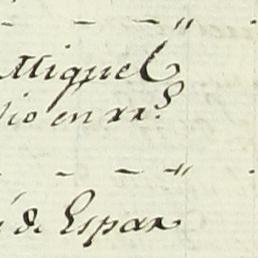 Miguel
io en rr.^s
de Espar